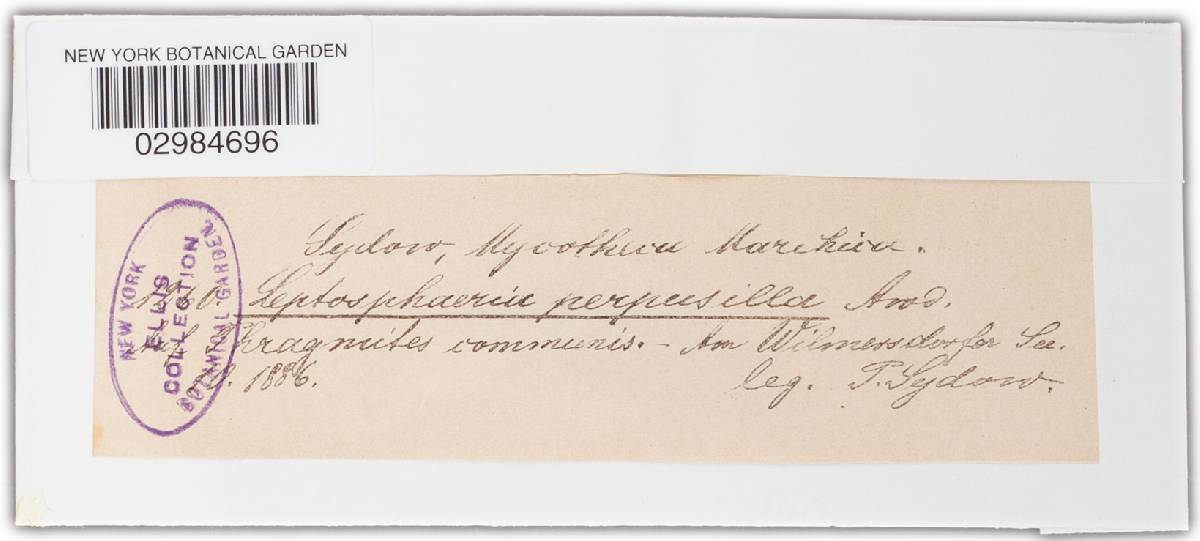 NEW YORK BOTANICAL GARDEN
02984696
NEW YORK
ELLIS
COLLECTION
BOTANICAL GARDEN.
Sydow, Mycotheca Marchica.
Leptosphaeria perpusilla Awd.
Phragmites communis. - Am Wilmersdorfer See.
1886. leg. P. Sydow.